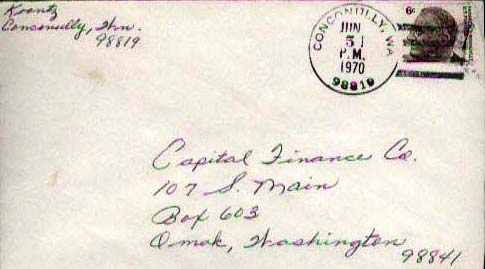 Koontz
Conconully, Wn.
98819
CONCONULLY, WA
JUN
5
P.M.
1970
98819
6c
Capital Finance Co.
107 S. Main
Box 603
Omak, Washington
98841